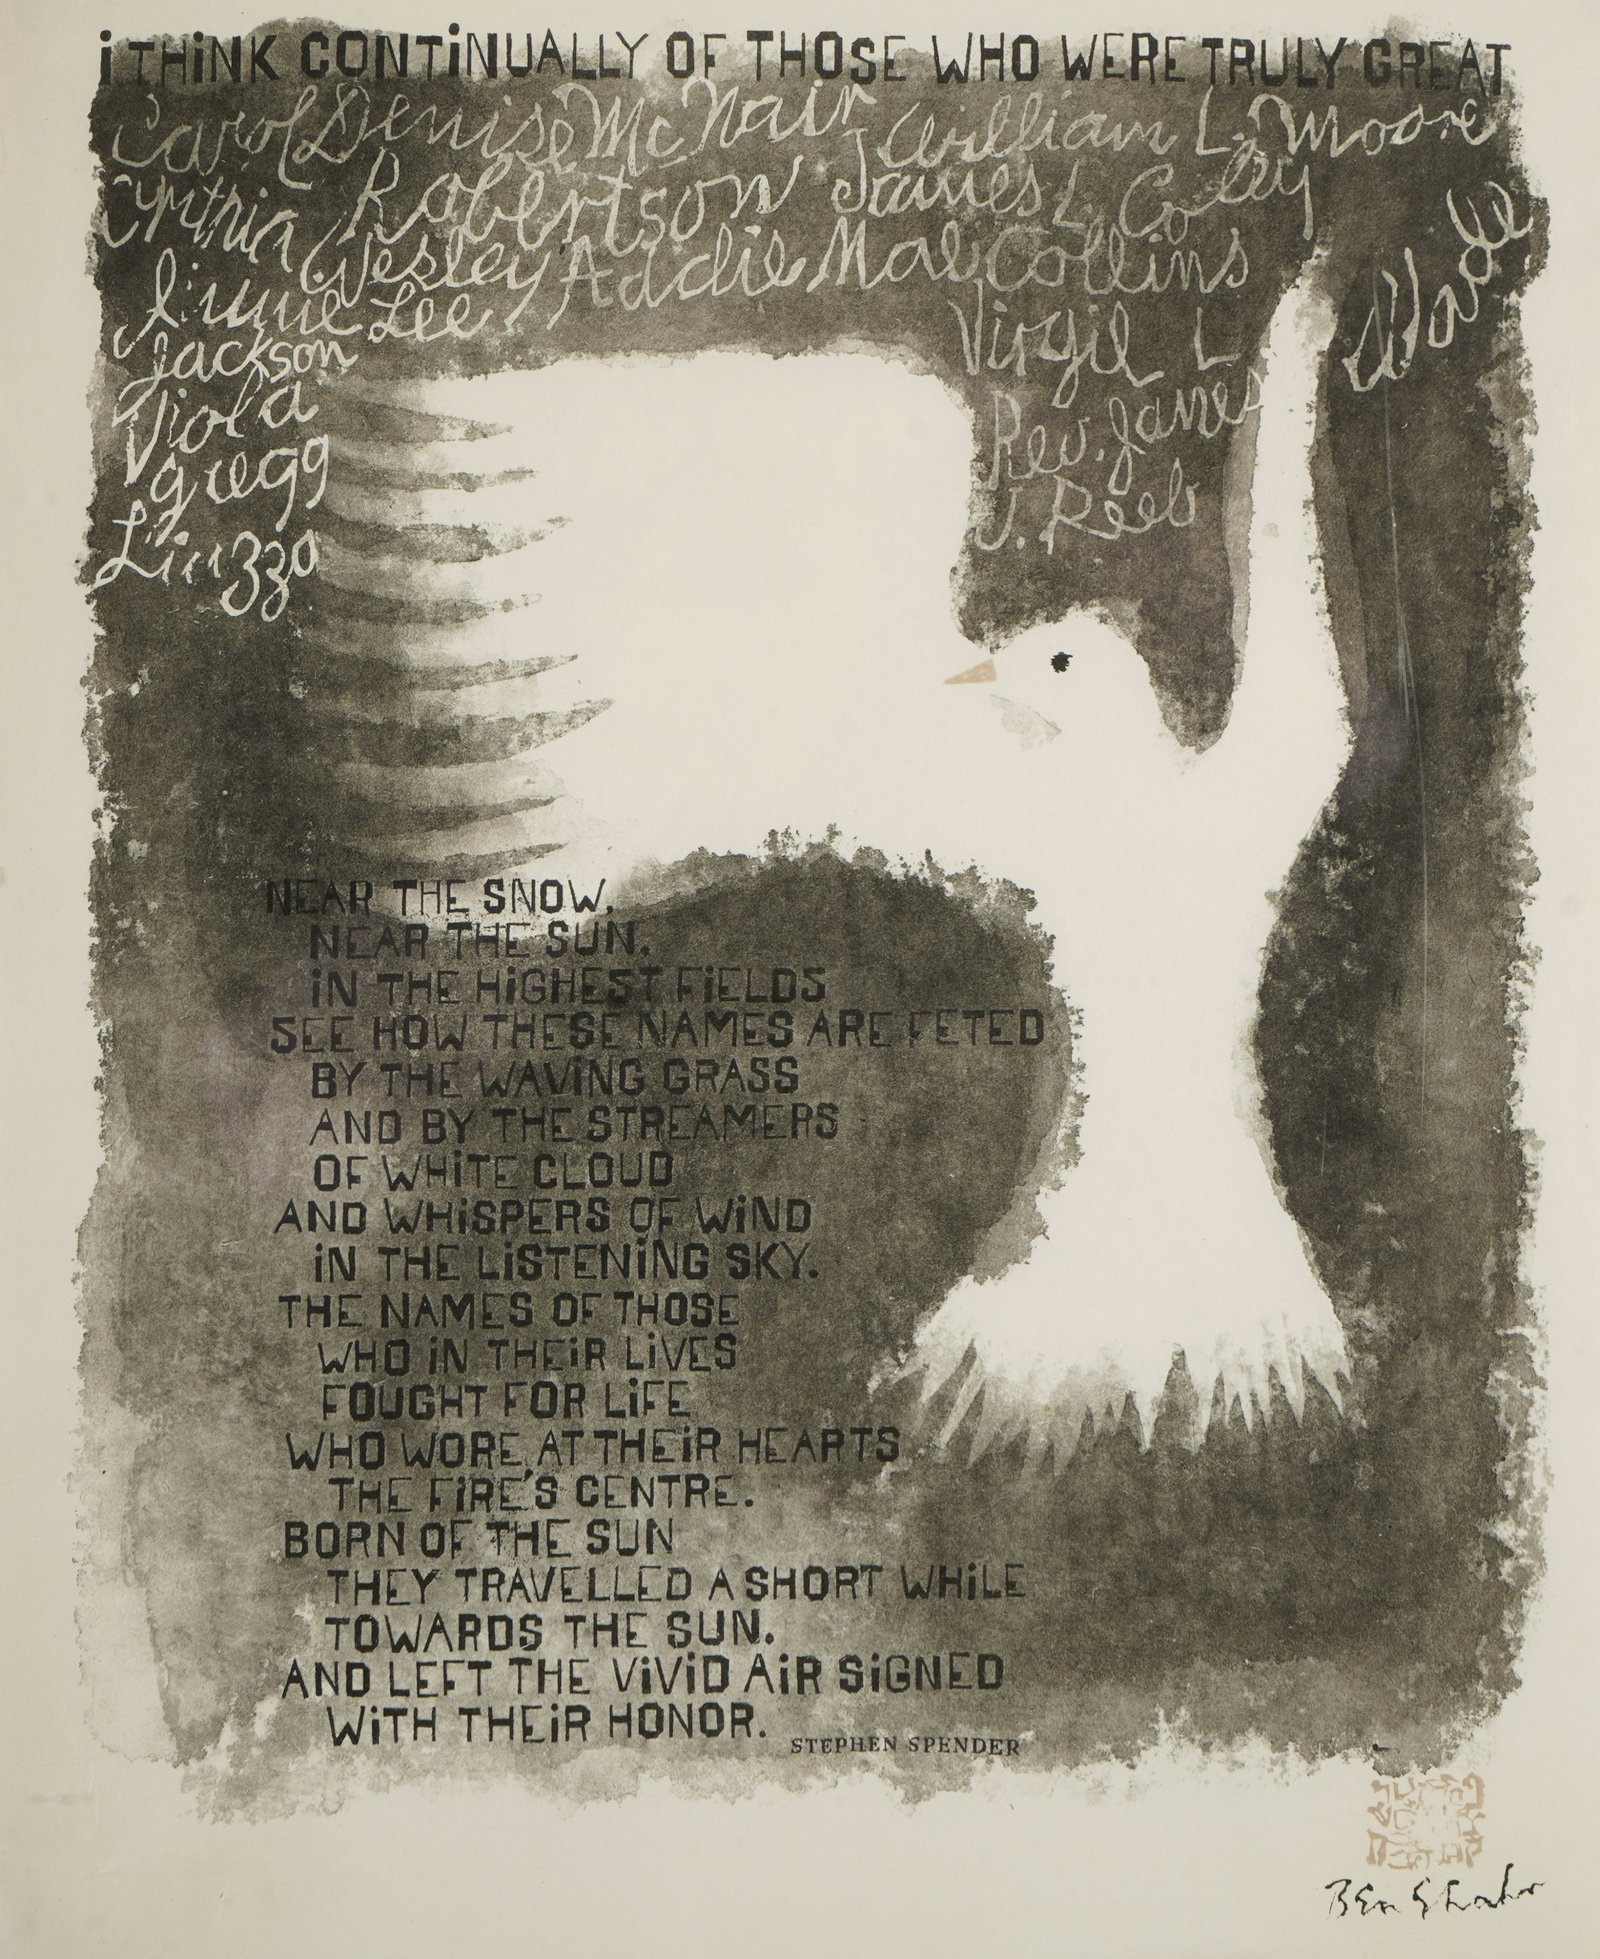 i THiNK CONTiNUALLY OF THOSE WHO WERE TRULY GREAT
Carol Denise McNair William L. Moore
Cynthia Robertson James L. Coley
Wesley Addie Mae Collins
Jimmie Lee Virgil L Ware
Jackson Rev. James
Viola J. Reeb
gregg
Liuzzo
NEAR THE SNOW,
NEAR THE SUN,
iN THE HiGHEST FiELDS
SEE HOW THESE NAMES ARE FETED
BY THE WAViNG GRASS
AND BY THE STREAMERS
OF WHiTE CLOUD
AND WHiSPERS OF WiND
iN THE LiSTENiNG SKY.
THE NAMES OF THOSE
WHO iN THEiR LiVES
FOUGHT FOR LiFE
WHO WORE AT THEiR HEARTS
THE FiRE'S CENTRE.
BORN OF THE SUN
THEY TRAVELLED A SHORT WHiLE
TOWARDS THE SUN.
AND LEFT THE ViViD AiR SiGNED
WiTH THEiR HONOR.
STEPHEN SPENDER
Ben Shahn